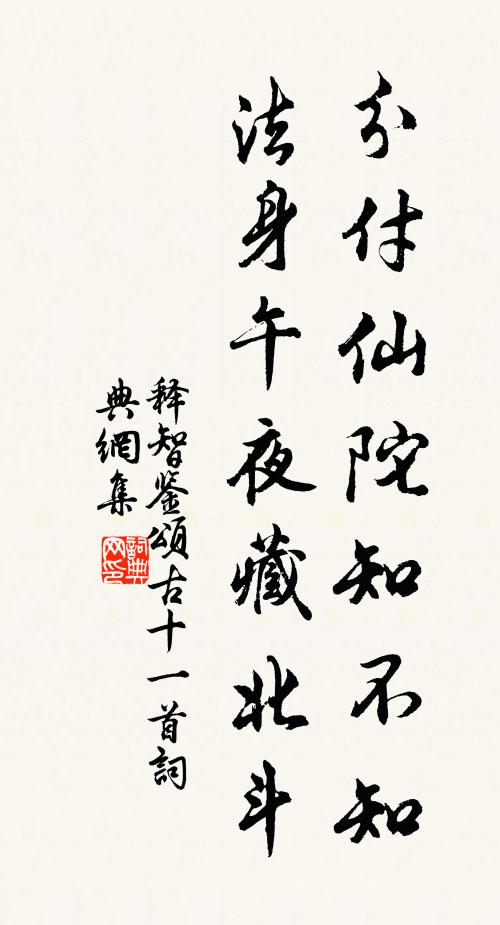 分付仙陀知不知
法身午夜藏北斗
释智鉴颂古十一首詞
典網集
詞典
网印